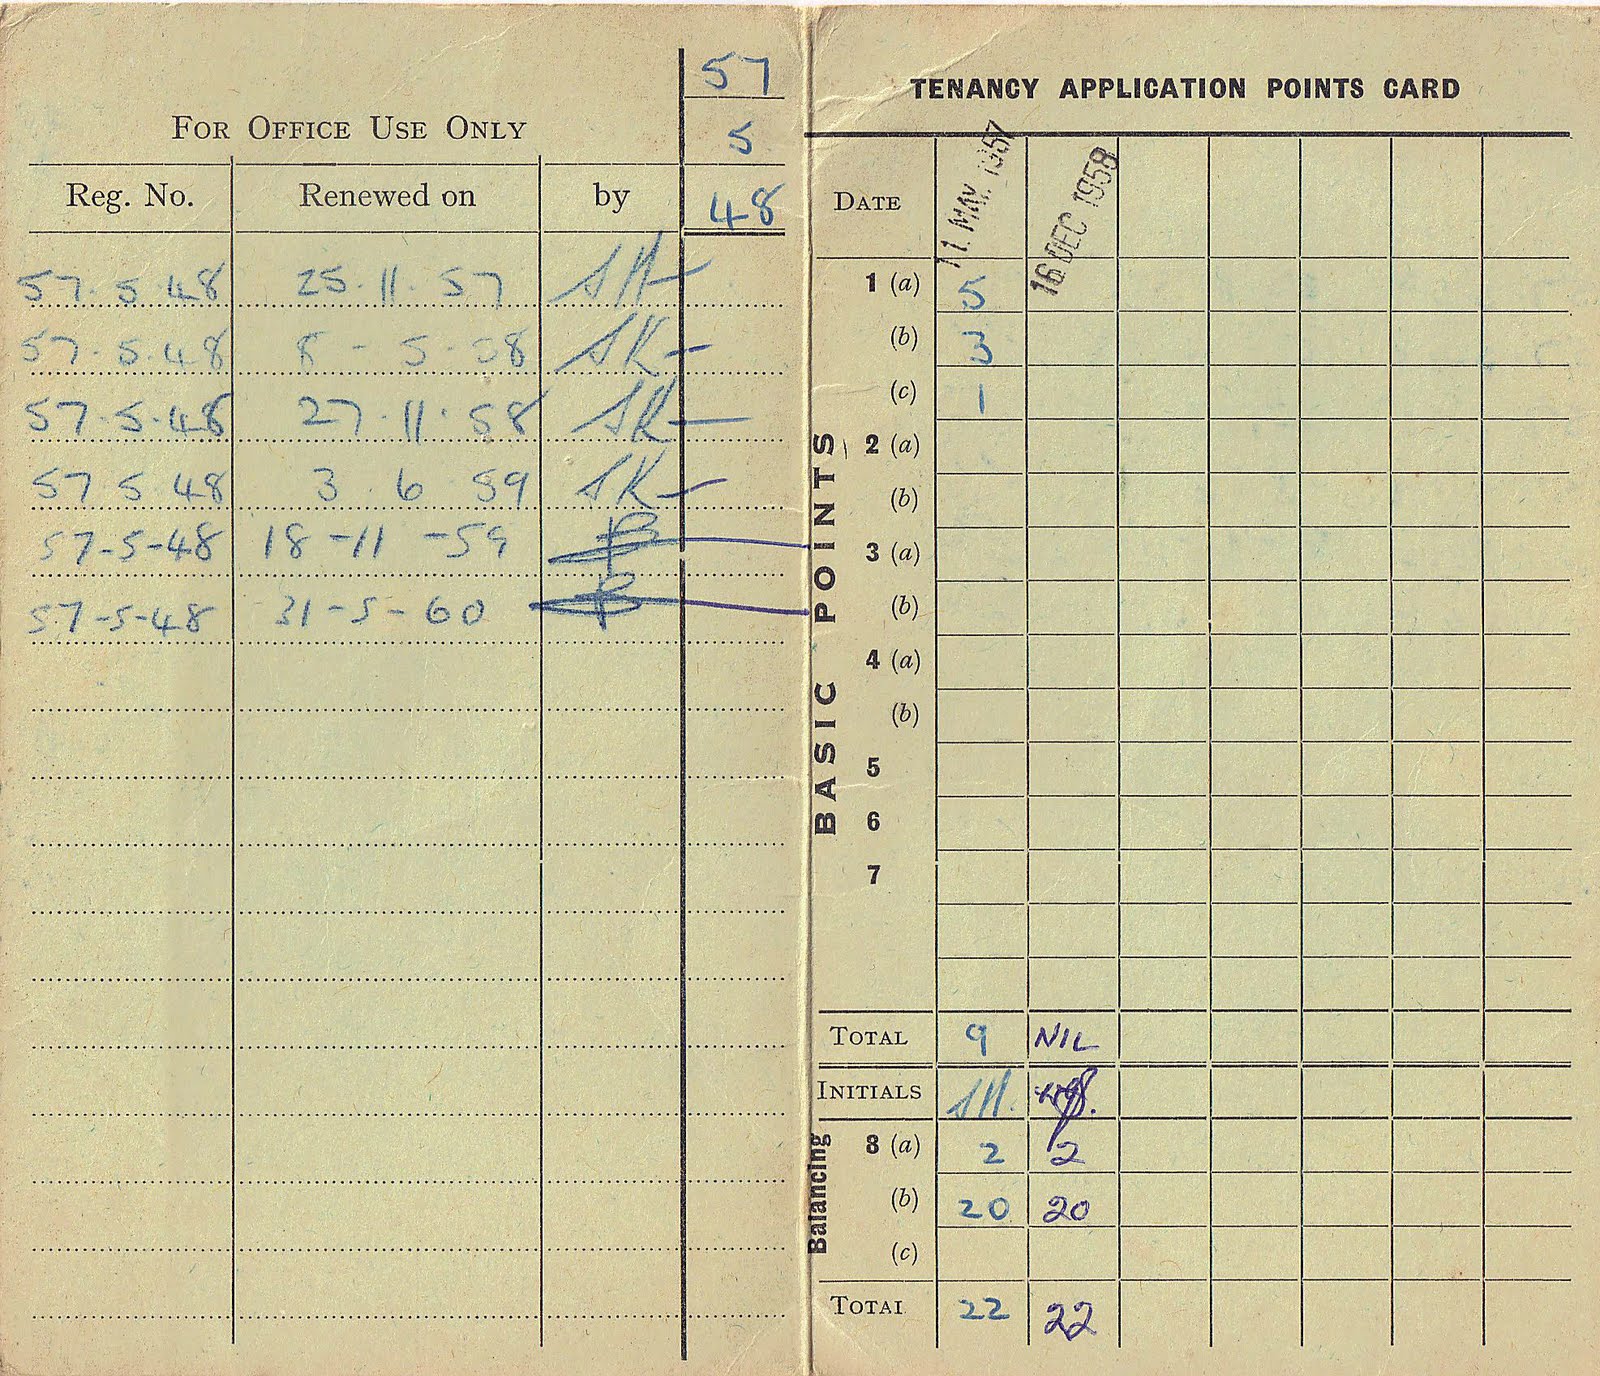 57
5
48
FOR OFFICE USE ONLY
Reg. No. Renewed on by
57.5.48 25.11.57
57.5.48 8-5-58 SK
57.5.48 27.11.58 SK
57.5.48 3.6.59 SK
57-5-48 18-11-59
57-5-48 31-5-60
TENANCY APPLICATION POINTS CARD
DATE 11 MAY 1957 16 DEC 1958
BASIC POINTS
1 (a) 5
(b) 3
(c) 1
2 (a)
(b)
3 (a)
(b)
4 (a)
(b)
5
6
7
TOTAL 9 NIL
INITIALS
Balancing
8 (a) 2 2
(b) 20 20
(c)
TOTAL 22 22